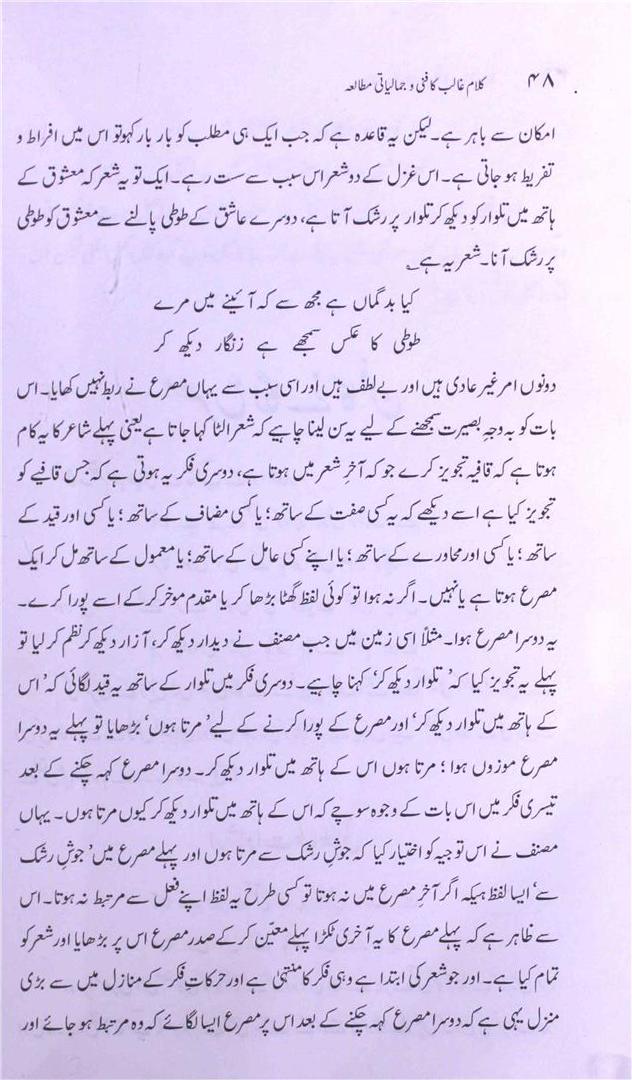 ۴۸ کلام غالب کا فنی و جمالیاتی مطالعہ
امکان سے باہر ہے۔ لیکن یہ قاعدہ ہے کہ جب ایک ہی مطلب کو بار بار کہو تو اس میں افراط و
تفریط ہو جاتی ہے۔ اس غزل کے دو شعر اس سبب سے ست رہے۔ ایک تو یہ شعر کہ معشوق کے
ہاتھ میں تلوار کو دیکھ کر تلوار پر رشک آتا ہے، دوسرے عاشق کے طوطی پالنے سے معشوق کو طوطی
پر رشک آنا۔ شعر یہ ہے ؎
کیا بد گماں ہے مجھ سے کہ آئینے میں مرے
طوطی کا عکس سمجھے ہے زنگار دیکھ کر
دونوں امر غیر عادی ہیں اور بے لطف ہیں اور اسی سبب سے یہاں مصرع نے ربط نہیں کھایا۔ اس
بات کو بہ وجہِ بصیرت سمجھنے کے لیے یہ سن لینا چاہیے کہ شعر الٹا کہا جاتا ہے یعنی پہلے شاعر کا یہ کام
ہوتا ہے کہ قافیہ تجویز کرے جو کہ آخرِ شعر میں ہوتا ہے، دوسری فکر یہ ہوتی ہے کہ جس قافیے کو
تجویز کیا ہے اسے دیکھے کہ یہ کسی صفت کے ساتھ؛ یا کسی مضاف کے ساتھ؛ یا کسی اور قید کے
ساتھ؛ یا کسی اور محاورے کے ساتھ؛ یا اپنے کسی عامل کے ساتھ؛ یا معمول کے ساتھ مل کر ایک
مصرع ہوتا ہے یا نہیں۔ اگر نہ ہوا تو کوئی لفظ گھٹا بڑھا کر یا مقدم موخر کر کے اسے پورا کرے۔
یہ دوسرا مصرع ہوا۔ مثلاً اسی زمین میں جب مصنف نے دیدار دیکھ کر، آزار دیکھ کر نظم کر لیا تو
پہلے یہ تجویز کیا کہ ’تلوار دیکھ کر‘ کہنا چاہیے۔ دوسری فکر میں تلوار کے ساتھ یہ قید لگائی کہ ’اس
کے ہاتھ میں تلوار دیکھ کر‘ اور مصرع کے پورا کرنے کے لیے ’مرتا ہوں‘ بڑھایا تو پہلے یہ دوسرا
مصرع موزوں ہوا؛ مرتا ہوں اس کے ہاتھ میں تلوار دیکھ کر۔ دوسرا مصرع کہہ چکنے کے بعد
تیسری فکر میں اس بات کے وجوہ سوچے کہ اس کے ہاتھ میں تلوار دیکھ کر کیوں مرتا ہوں۔ یہاں
مصنف نے اس توجیہ کو اختیار کیا کہ جوشِ رشک سے مرتا ہوں اور پہلے مصرع میں ’جوشِ رشک
سے‘ ایسا لفظ ہیکہ اگر آخرِ مصرع میں نہ ہوتا تو کسی طرح یہ لفظ اپنے فعل سے مرتبط نہ ہوتا۔ اس
سے ظاہر ہے کہ پہلے مصرع کا یہ آخری ٹکڑا پہلے معیّن کر کے صدر مصرع اس پر بڑھایا اور شعر کو
تمام کیا ہے۔ اور جو شعر کی ابتدا ہے وہی فکر کا منتہیٰ ہے اور حرکاتِ فکر کے منازل میں سے بڑی
منزل یہی ہے کہ دوسرا مصرع کہہ چکنے کے بعد اس پر مصرع ایسا لگائے کہ وہ مرتبط ہو جائے اور